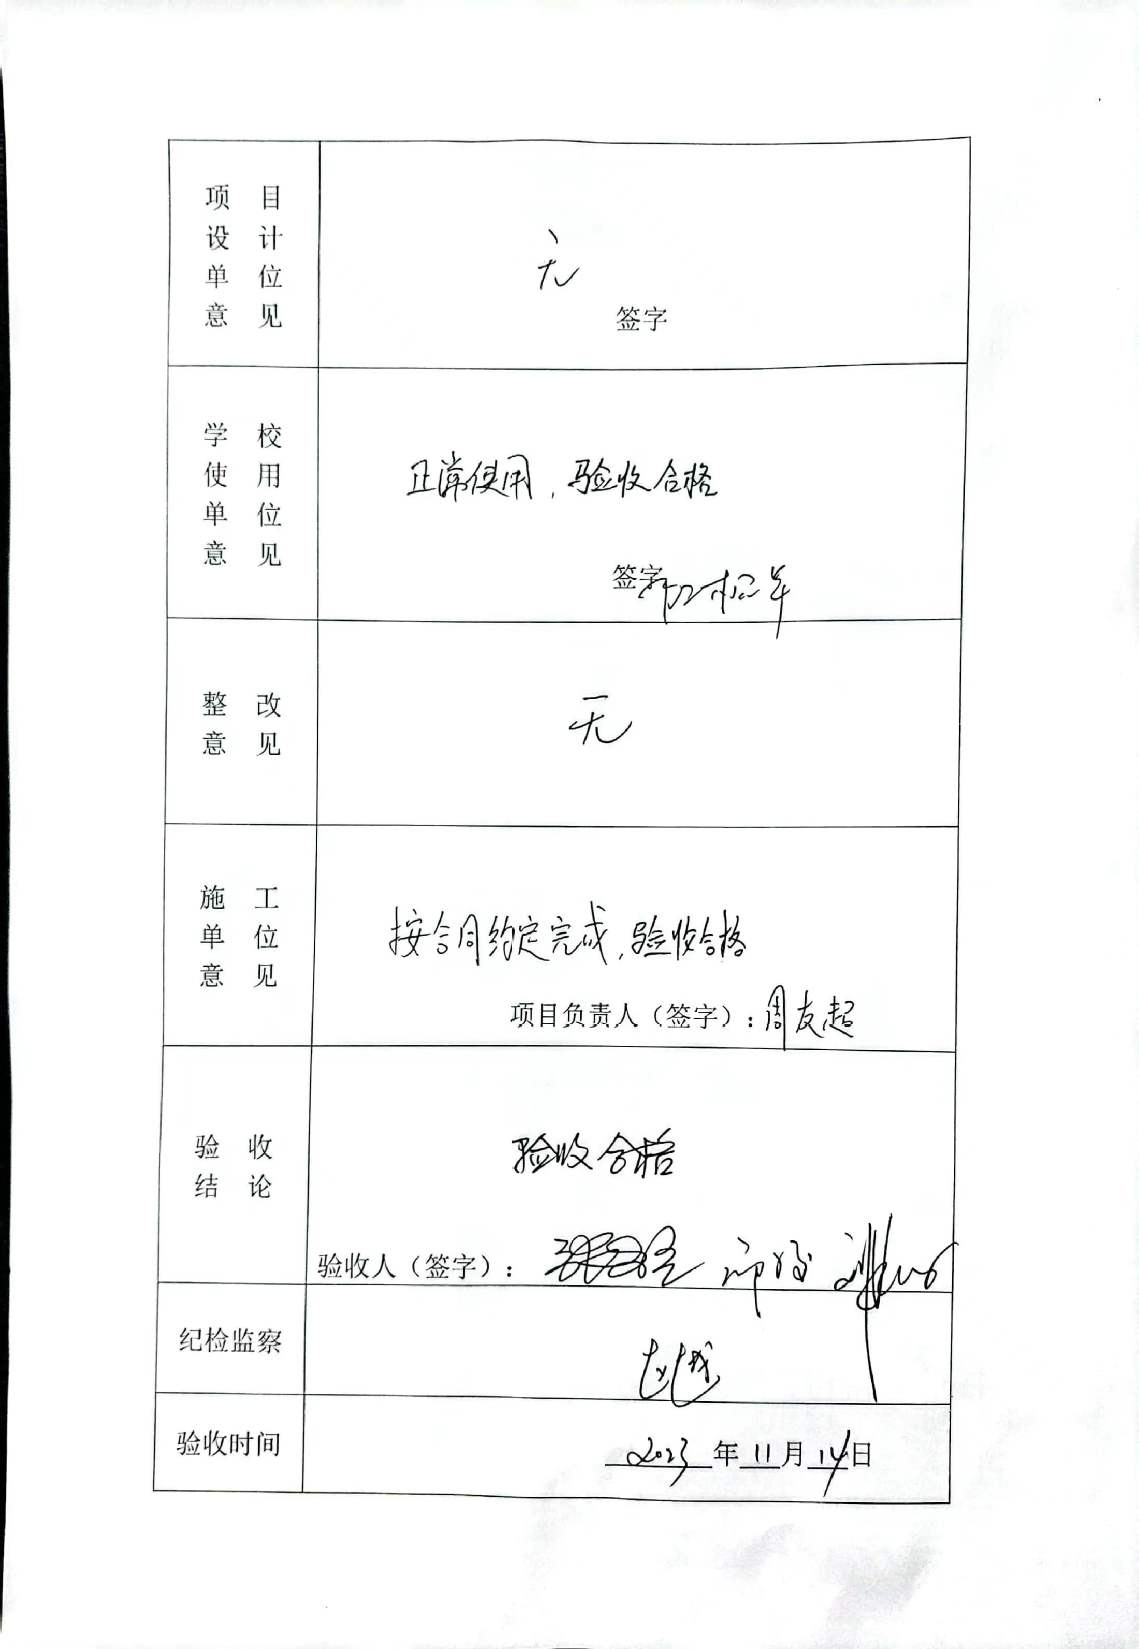 项目
设计
单位
意见
无
签字
学校
使用
单位
意见
正常使用，验收合格
签字
整改
意见
无
施工
单位
意见
按合同约定完成，验收合格
项目负责人（签字）：周友超
验收
结论
验收合格
验收人（签字）：
纪检监察
赵越
验收时间
2023年11月14日